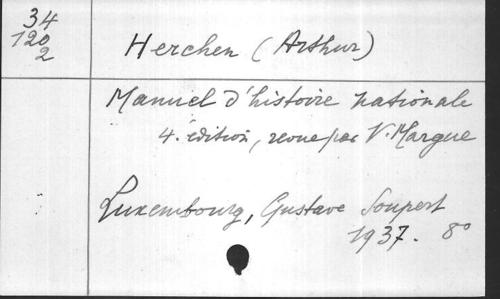 34
120
2
Herchen (Arthur)
Manuel d'histoire nationale
4. édition, revue par N. Margue
Luxembourg, Gustave Soupert
1937. 8°